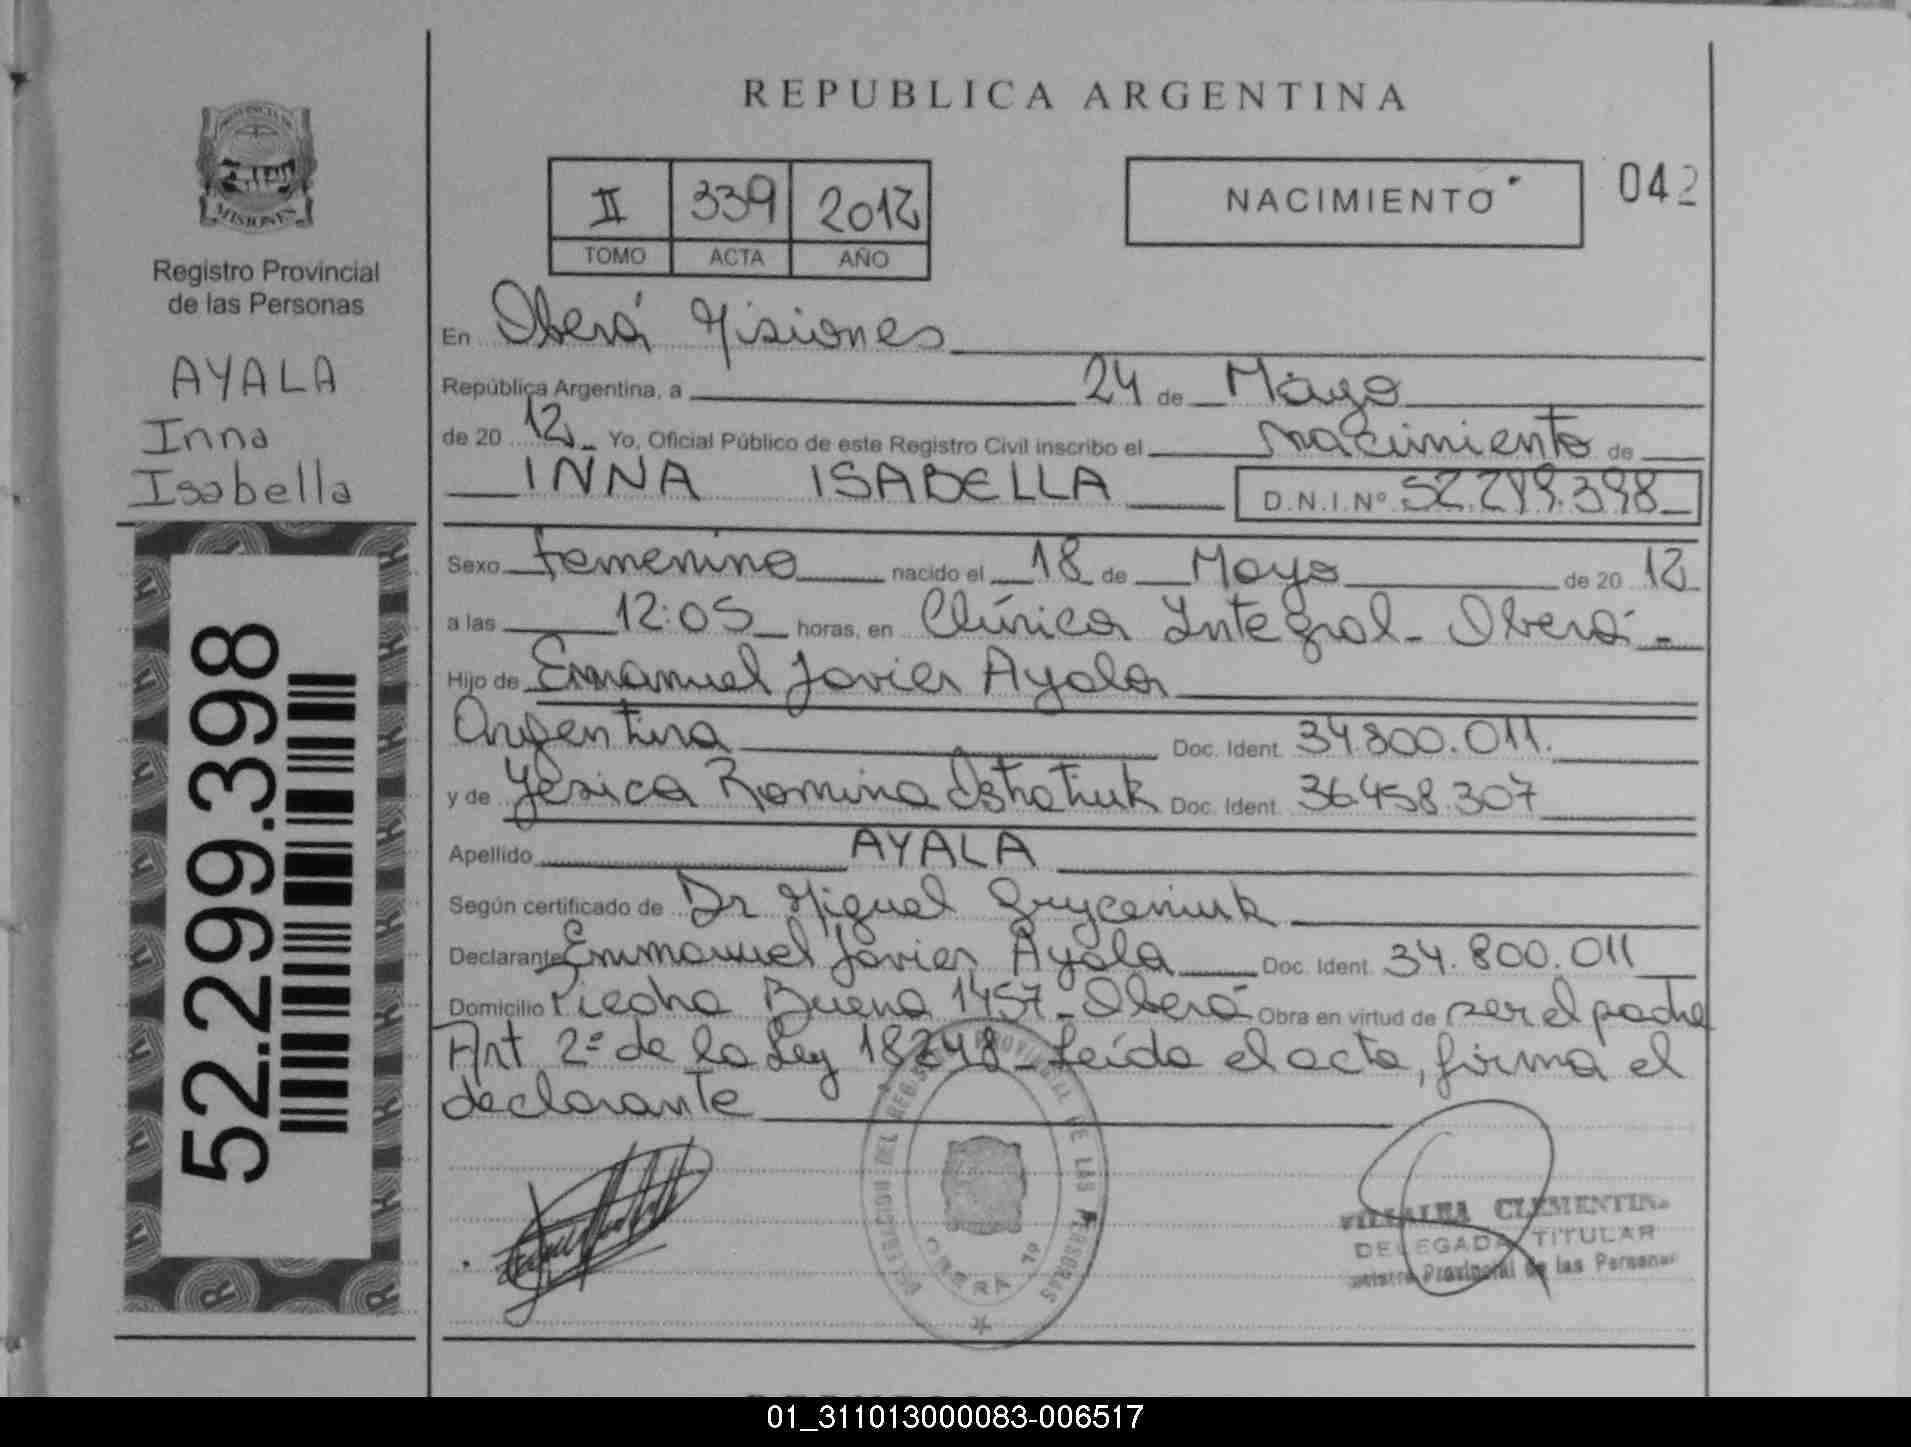 REPUBLICA ARGENTINA
PROVINCIA DE
MISIONES
Registro Provincial
de las Personas
AYALA
Inna
Isabella
52.299.398
II 339 2012
TOMO ACTA AÑO
NACIMIENTO
042
En Oberá Misiones
República Argentina, a 24 de Mayo
de 20 12 Yo, Oficial Público de este Registro Civil inscribo el nacimiento de
INNA ISABELLA D.N.I.Nº 52.299.398
Sexo femenino nacido el 18 de Mayo de 20 12
a las 12:05 horas, en Clínica Integral - Oberá -
Hijo de Emmanuel Javier Ayala
Argentina Doc. Ident. 34.800.011.
y de Yesica Romina Doc. Ident. 36.458.307
Apellido AYALA
Según certificado de Dr Miguel Gryceniuk
Declarante Emmanuel Javier Ayala Doc. Ident. 34.800.011
Domicilio Piedra Buena 1457 - Oberá Obra en virtud de ser el padre
Art 2º de la Ley 18248 - Leída el acta, firma el
declarante
DELEGACION DEL REGISTRO PROVINCIAL DE LAS PERSONAS
OBERA 1º
VILLALBA CLEMENTINA
DELEGADA TITULAR
Registro Provincial de las Personas
01_311013000083-006517